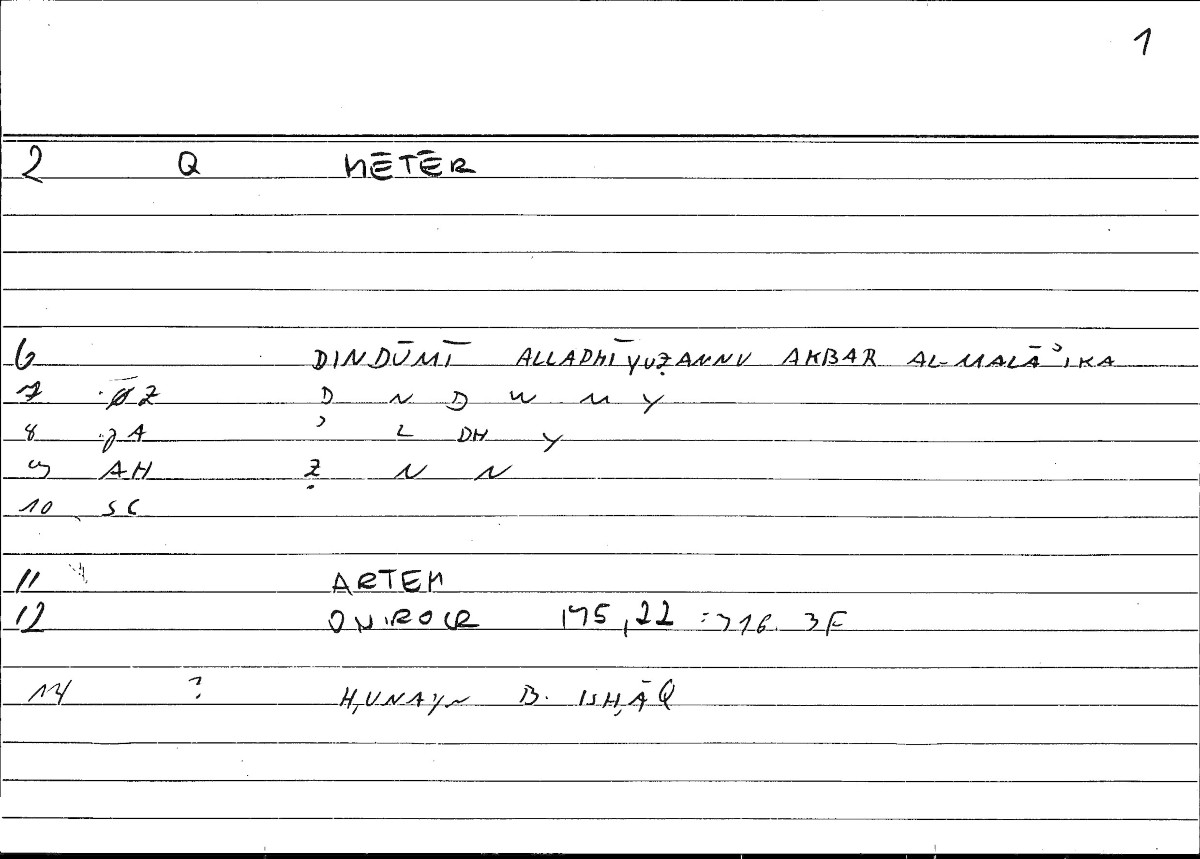 1
2 Q MĒTĒR
6 DINDŪMĪ ALLADHĪ YUẒANNU AKBAR AL-MALĀʾIKA
7 Z D N D W M Y
8 A ʾ L DH Y
9 AH Ẓ N N
10 SC
11 ARTEM
12 ONIROCR 175,22 = 316. 3F
14 ? ḤUNAYN B. ISḤĀQ